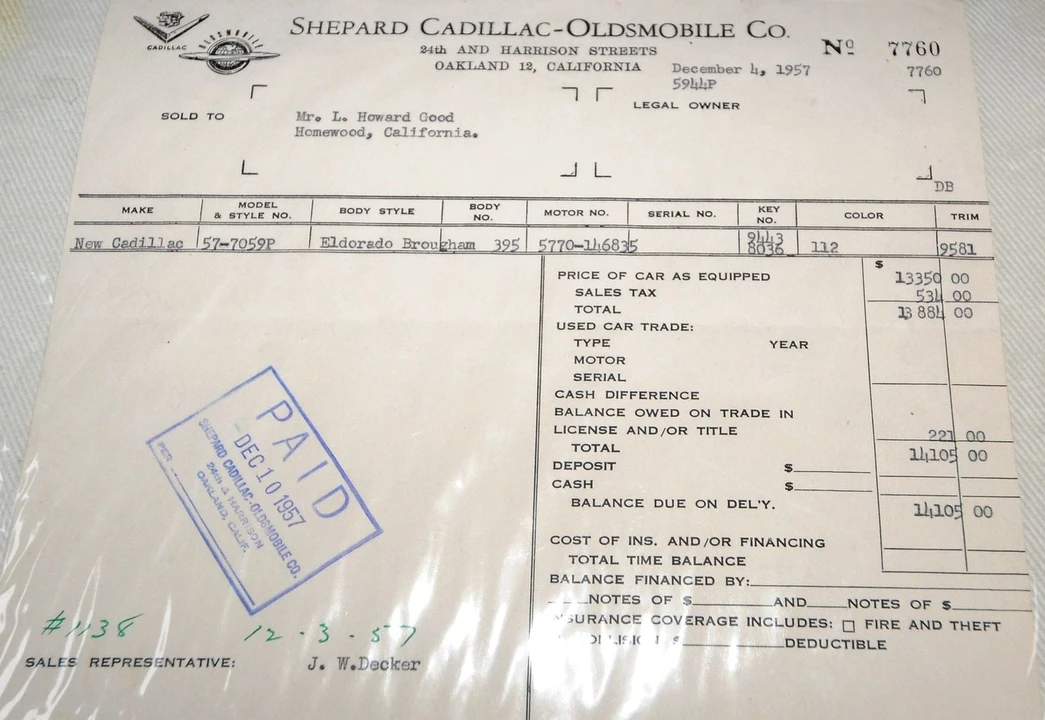 CADILLAC
OLDSMOBILE
SHEPARD CADILLAC-OLDSMOBILE CO.
24th AND HARRISON STREETS
OAKLAND 12, CALIFORNIA
No 7760
December 4, 1957 7760
5944P
SOLD TO
Mr. L. Howard Good
Homewood, California.
LEGAL OWNER
DB
MAKE MODEL & STYLE NO. BODY STYLE BODY NO. MOTOR NO. SERIAL NO. KEY NO. COLOR TRIM
New Cadillac 57-7059P Eldorado Brougham 395 5770-146835 9443 8036 112 9581
$
PRICE OF CAR AS EQUIPPED 13350 00
SALES TAX 534 00
TOTAL 13 884 00
USED CAR TRADE:
TYPE YEAR
MOTOR
SERIAL
CASH DIFFERENCE
BALANCE OWED ON TRADE IN
LICENSE AND/OR TITLE 221 00
TOTAL 14105 00
DEPOSIT $
CASH $
BALANCE DUE ON DEL'Y. 14105 00
COST OF INS. AND/OR FINANCING
TOTAL TIME BALANCE
BALANCE FINANCED BY:
NOTES OF $ AND NOTES OF $
INSURANCE COVERAGE INCLUDES: ☐ FIRE AND THEFT
$ DEDUCTIBLE
PAID
DEC 10 1957
SHEPARD CADILLAC-OLDSMOBILE CO.
24th & HARRISON
OAKLAND, CALIF.
PER
#1138 12-3-57
SALES REPRESENTATIVE: J. W.Decker